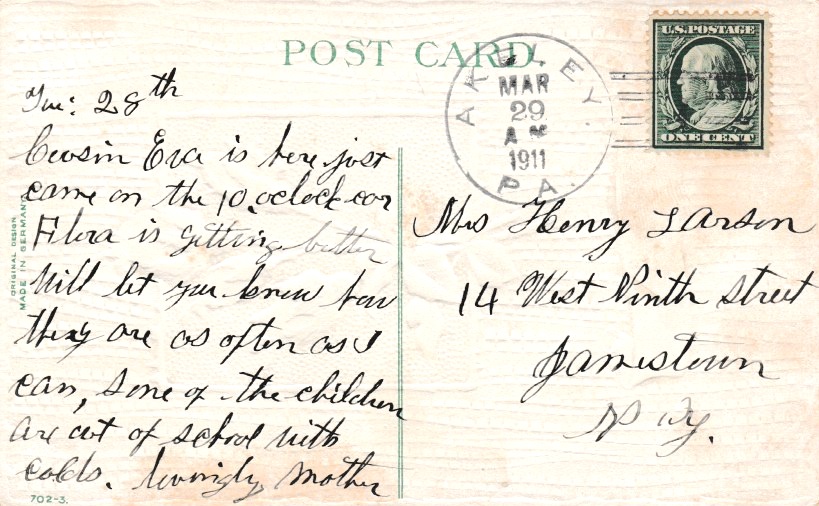 POST CARD
U.S. POSTAGE
ONE CENT
AKELEY.
MAR
29
A M
1911
PA.
Tue: 28th
Cousin Eva is here, just
came on the 10 oclock car
Flora is getting better
Will let you know how
they are as often as I
can, some of the children
are out of school with
colds. lovingly Mother
Mrs Henry Larson
14 West Ninth street
Jamestown
N Y.
ORIGINAL DESIGN
MADE IN GERMANY
702-3.